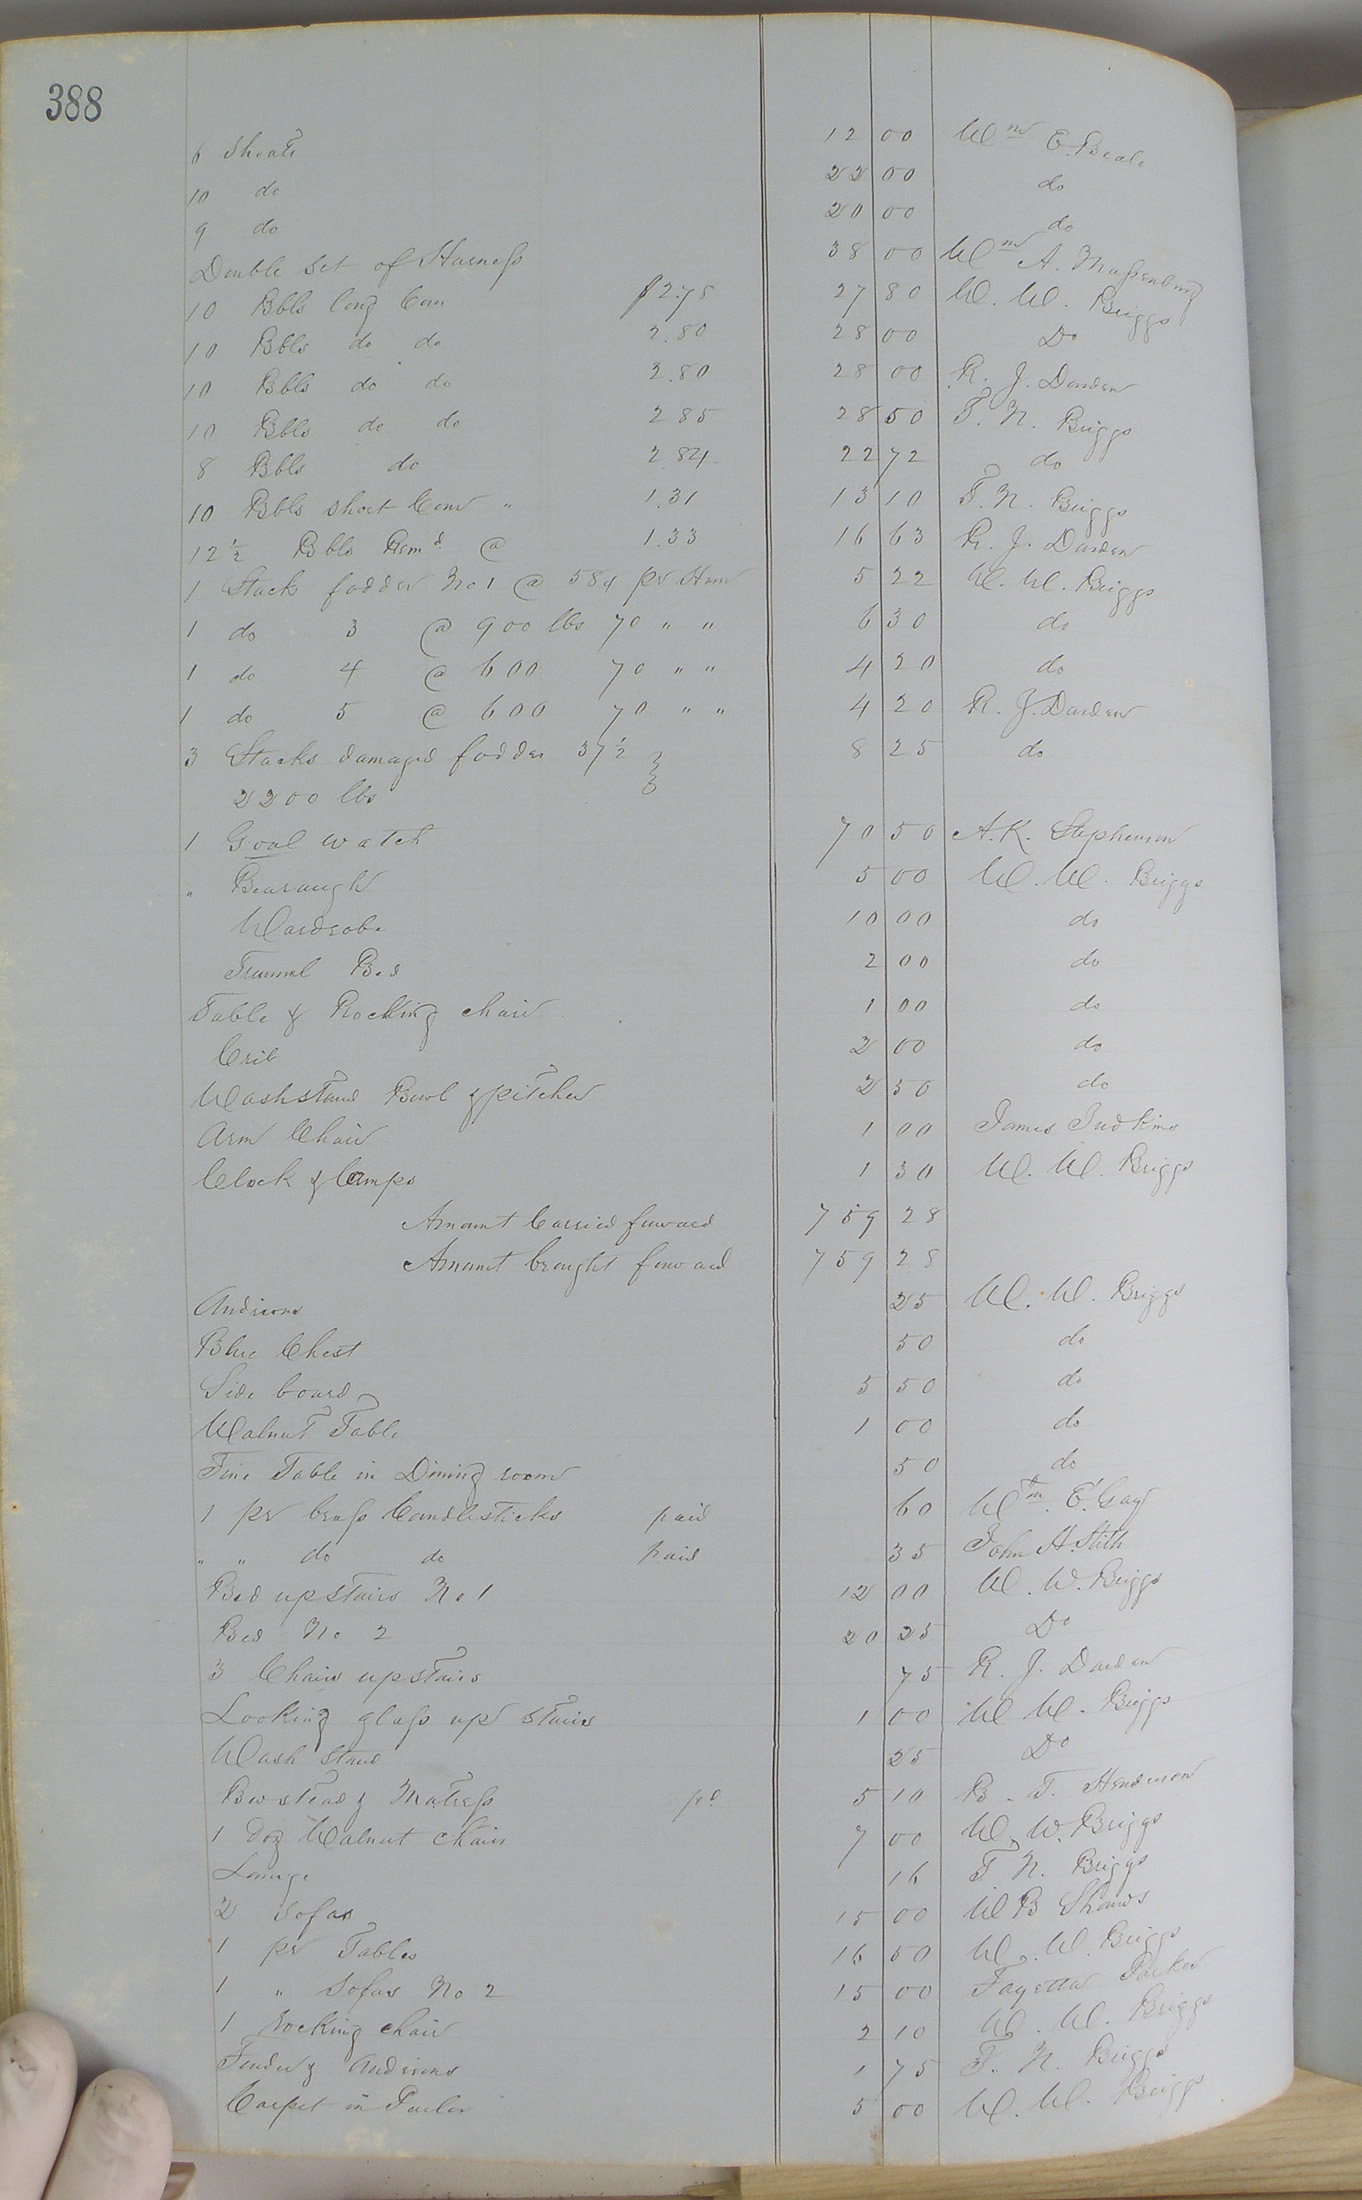 388
6 Shoats 12 00 Wm E. Beale
10 do 22 00 do
9 do 20 00 do
Double set of Harness 38 00 Wm A. Massenburg
10 Bbls long Corn $2.78 27 80 W. W. Briggs
10 Bbls do do 2.80 28 00 Do
10 Bbls do do 2.80 28 00 R. J. Darden
10 Bbls do do 2 85 28 50 T. N. Briggs
8 Bbls do 2.84 22 72 do
10 Bbls short Corn " 1.31 13 10 T. N. Briggs
12½ Bbls Remd @ 1.33 16 63 R. J. Darden
1 Stack fodder No 1 @ 58¢ pr Hun 5 22 W. W. Briggs
1 do 3 @ 900 lbs 70 " " 6 30 do
1 do 4 @ 600 70 " " 4 20 do
1 do 5 @ 600 70 " " 4 20 R. J. Darden
3 Stacks damaged fodder 37½ 8 25 do
2200 lbs
1 Goal watch 70 50 A. K. Stephenson
" Bearaugh 5 00 W. W. Briggs
Wardrobe 10 00 do
Trunnel Bed 2 00 do
Table & Rocking chair 1 00 do
Crib 2 00 do
Washstand Bowl & pitcher 2 50 do
Arm Chair 1 00 James Judkins
Clock & Lamps 1 30 W. W. Briggs
Amount Carried forward 759 28
Amount brought forward 759 28
Andirons 25 W. W. Briggs
Blue Chest 50 do
Side board 5 50 do
Walnut Table 1 00 do
Fine Table in Dining room 50 do
1 pr brass Candlesticks paid 60 Wm E. Gay
" " do do paid 35 John H. Stith
Bed upstairs No 1 12 00 W. W. Briggs
Bed No 2 20 25 Do
3 Chairs upstairs 75 R. J. Darden
Looking glass up stairs 1 00 W W. Briggs
Wash stand 25 Do
Bedstead & Matress pd 5 10 B. T. Henderson
1 Doz Walnut chairs 7 00 W. W. Briggs
Lounge 16 T. N. Briggs
2 Sofas 15 00 W B Shands
1 pr Tables 16 50 W. W. Briggs
1 " Sofas No 2 15 00 Fayette Parker
1 rocking chair 2 10 W. W. Briggs
Fender & Andirons 1 75 T. N. Briggs
Carpet in Parlor 5 00 W. W. Briggs